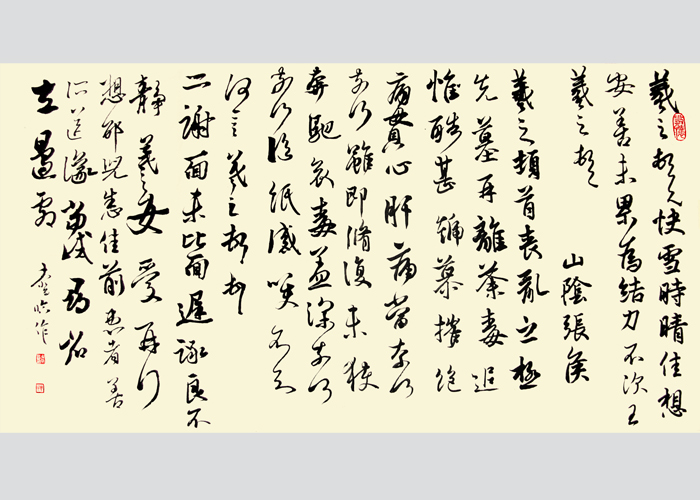 羲之頓首快雪時晴佳想
安善未果為結力不次王
羲之頓首 山陰張侯
羲之頓首喪亂之極
先墓再離荼毒追
惟酷甚號慕摧絕
痛貫心肝痛當奈何
奈何雖即脩復未獲
奔馳哀毒益深奈何
奈何臨紙感哽不知
何言羲之頓首
二謝面未比面遲詠良不
靜羲之女愛再拜
想邵兒悉佳前患者善
所送議當試尋省
左邊劇
臨作